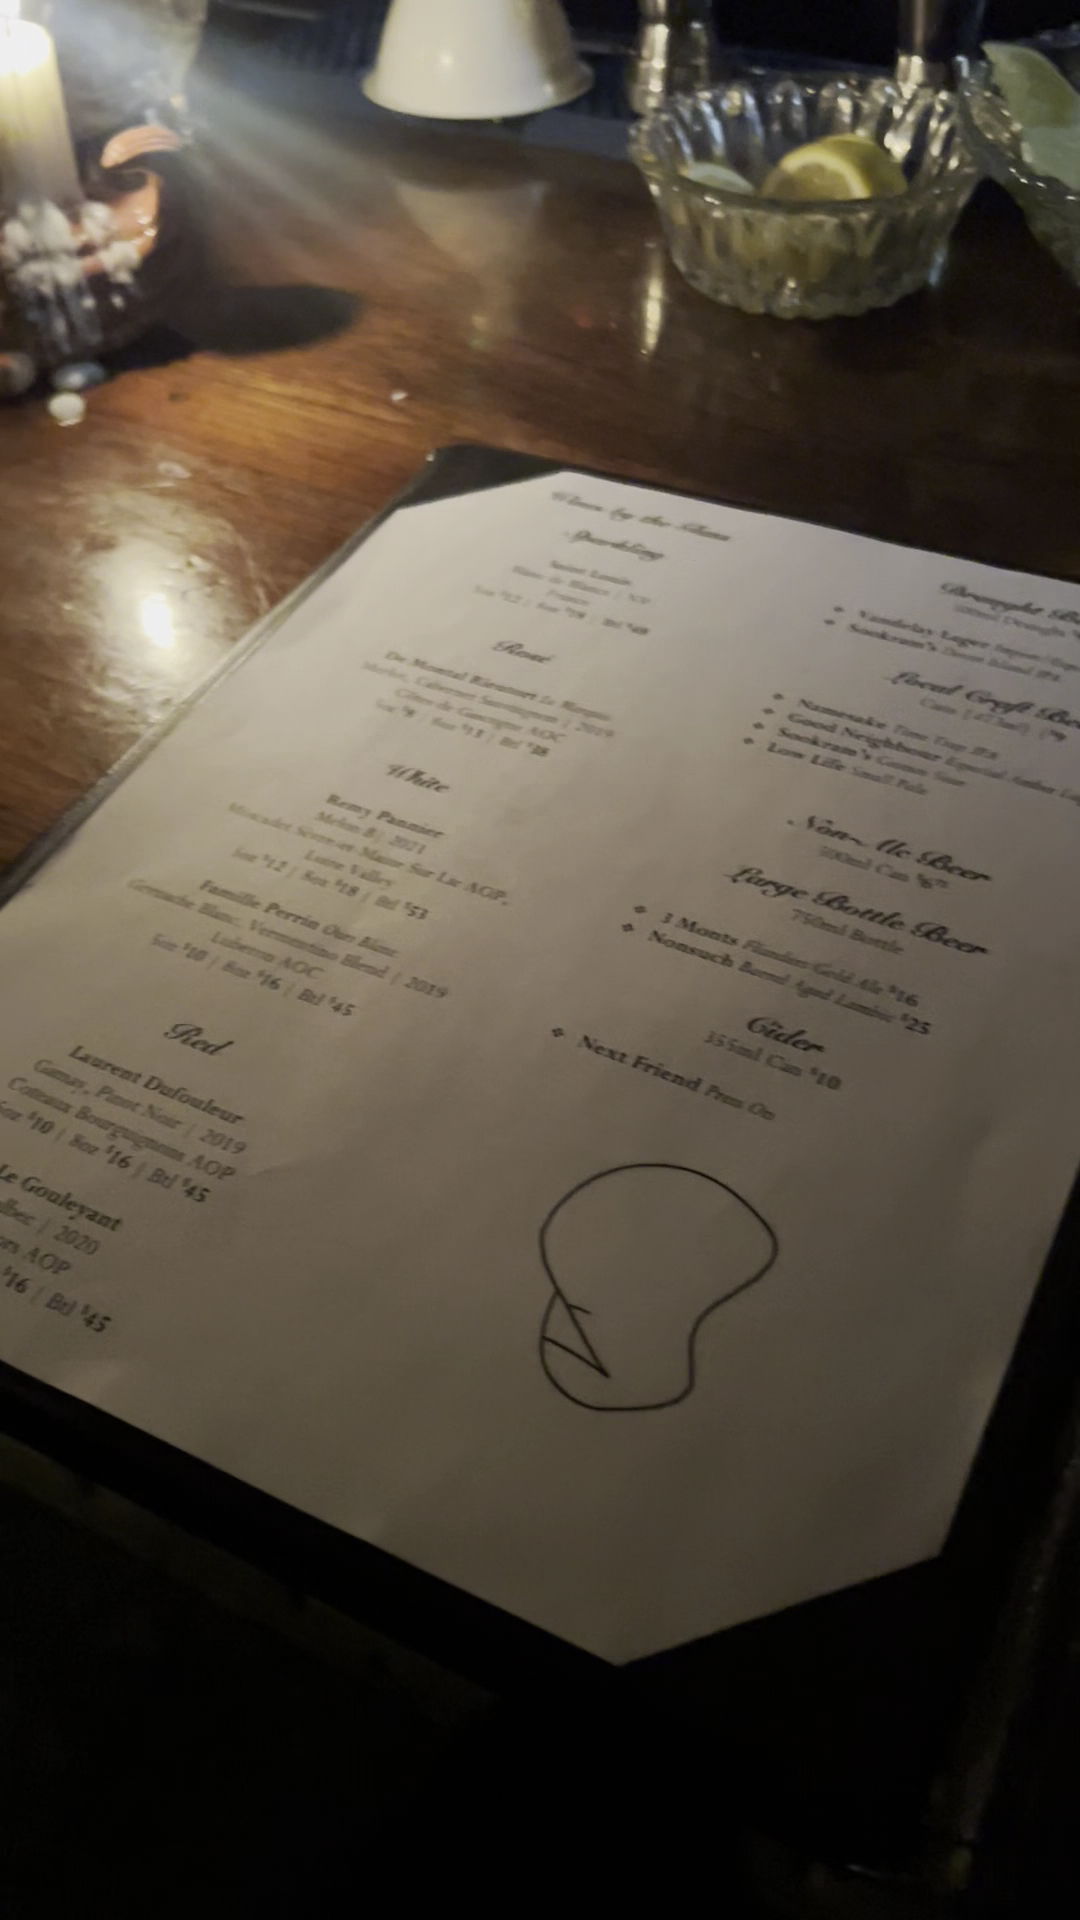 Wines by the Glass
Sparkling
Saint Louis
Blanc de Blancs | NV
France
5oz $12 | 8oz $18 | Btl $48
Rosé
De Montal
Merlot, Cabernet Sauvignon | 2019
Côtes de Gascogne AOC
5oz $9 | 8oz $13 | Btl $38
White
Remy Pannier
Melon B | 2021
Muscadet Sèvre et Maine Sur Lie AOP,
Loire Valley
5oz $12 | 8oz $18 | Btl $53
Famille Perrin Oui Blanc
Grenache Blanc, Vermentino Blend | 2019
Luberon AOC
5oz $10 | 8oz $16 | Btl $45
Red
Laurent Dufouleur
Gamay, Pinot Noir | 2019
Coteaux Bourguignons AOP
5oz $10 | 8oz $16 | Btl $45
Le Gouleyant
| 2020
AOP
$16 | Btl $45
Draught
Draught
❖ Vandelay Lager
❖ Sookram's Desert Island IPA
Local Craft
Cans (473ml) $9
❖ Namesake Time Trap IPA
❖ Good Neighbour Especial Amber
❖ Sookram's Cosmos Sour
❖ Low Life Small Pale
Non-Alc Beer
Can $6
Large Bottle Beer
750ml Bottle
❖ 3 Monts Flanders Gold Ale $16
❖ Nonsuch Barrel Aged Lambic $25
Cider
355ml Can $10
❖ Next Friend Press On